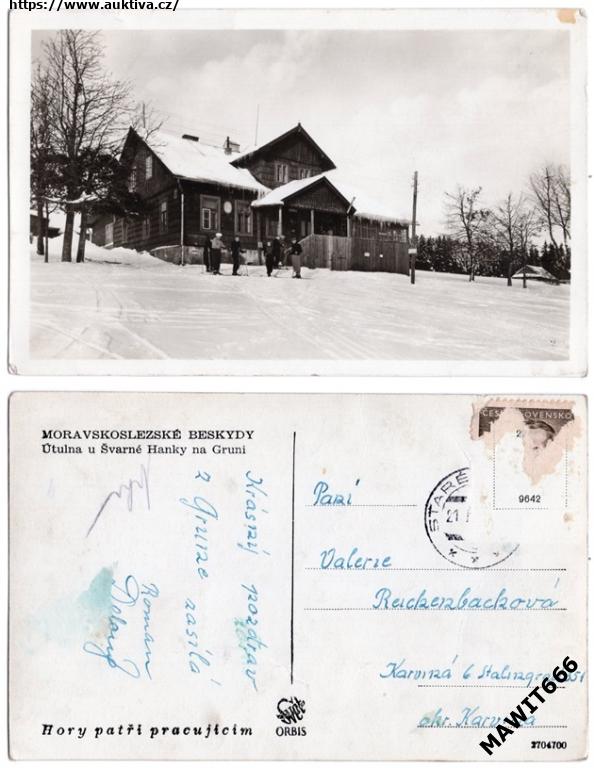 https://www.auktiva.cz/
MORAVSKOSLEZSKÉ BESKYDY
Útulna u Švarné Hanky na Gruni
Krásný pozdrav
z Gruně zasílá
Roman
Hory patří pracujícím
ORBIS
ČESKOSLOVENSKO
9642
STARÉ
21
Paní
Valerie
Reickenbachová
Karviná 6
okr. Karviná
MAWIT666
2704700